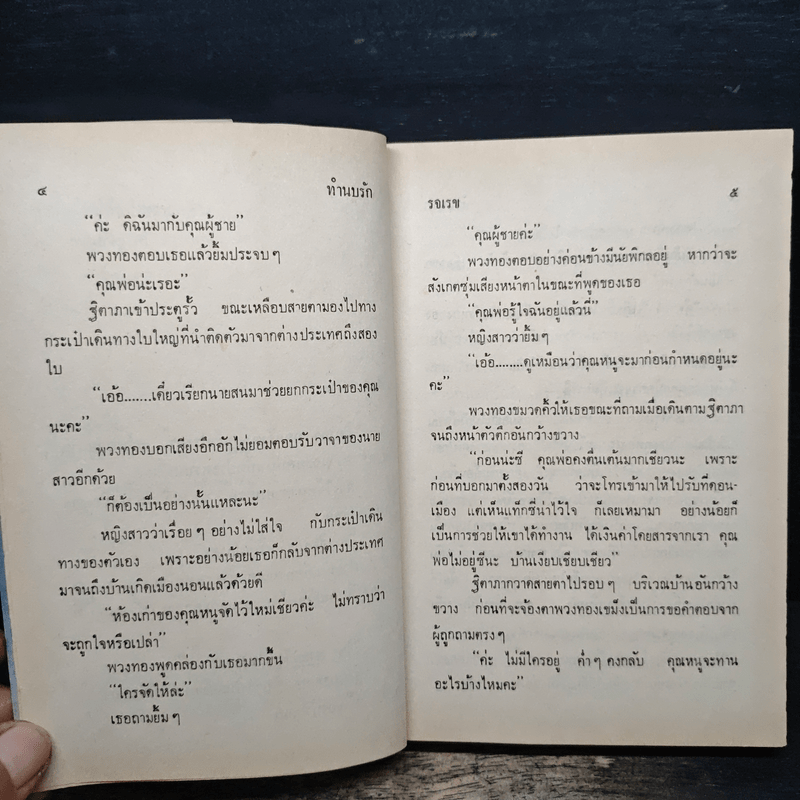 ๔ ทำนบรัก
“ค่ะ ดิฉันมากับคุณผู้ชาย”
พวงทองตอบเธอแล้วยิ้มประจบๆ
“คุณพ่อน่ะเรอะ”
ฐิตาภาเข้าประตูรั้ว ขณะเหลือบสายตามองไปทาง
กระเป๋าเดินทางใบใหญ่ที่นำติดตัวมาจากต่างประเทศถึงสอง
ใบ
“เอ้อ.......เดี๋ยวเรียกนายสนมาช่วยยกกระเป๋าของคุณ
นะคะ”
พวงทองบอกเสียงอึกอักไม่ยอมตอบรับวาจาของนาย
สาวอีกด้วย
“ก็ต้องเป็นอย่างนั้นแหละนะ”
หญิงสาวว่าเรื่อยๆ อย่างไม่ใส่ใจ กับกระเป๋าเดิน
ทางของตัวเอง เพราะอย่างน้อยเธอก็กลับจากต่างประเทศ
มาจนถึงบ้านเกิดเมืองนอนแล้วด้วยดี
“ห้องเก่าของคุณหนูจัดไว้ใหม่เชียวค่ะ ไม่ทราบว่า
จะถูกใจหรือเปล่า”
พวงทองพูดคล่องกับเธอมากขึ้น
“ใครจัดให้ล่ะ”
เธอถามยิ้มๆ
รจเรข ๕
“คุณผู้ชายค่ะ”
พวงทองตอบอย่างค่อนข้างมีนัยพิกลอยู่ หากว่าจะ
สังเกตซุ่มเสียงหน้าตาในขณะที่พูดของเธอ
“คุณพ่อรู้ใจฉันอยู่แล้วนี่”
หญิงสาวว่ายิ้มๆ
“เอ้อ........ดูเหมือนว่าคุณหนูจะมาก่อนกำหนดอยู่นะ
คะ”
พวงทองขมวดคิ้วให้เธอขณะที่ถามเมื่อเดินตามฐิตาภา
จนถึงหน้าตัวตึกอันกว้างขวาง
“ก่อนน่ะซี คุณพ่อคงตื่นเต้นมากเชียวนะ เพราะ
ก่อนที่บอกมาตั้งสองวัน ว่าจะโทรเข้ามาให้ไปรับที่ดอน-
เมือง แต่เห็นแท็กซี่น่าไว้ใจ ก็เลยเหมามา อย่างน้อยก็
เป็นการช่วยให้เขาได้ทำงาน ได้เงินค่าโดยสารจากเรา คุณ
พ่อไม่อยู่ซีนะ บ้านเงียบเชียบเชียว”
ฐิตาภากวาดสายตาไปรอบๆ บริเวณบ้านอันกว้าง
ขวาง ก่อนที่จะจ้องตาพวงทองเขม็งเป็นการขอคำตอบจาก
ผู้ถูกถามตรงๆ
“ค่ะ ไม่มีใครอยู่ ค่ำๆ คงกลับ คุณหนูจะทาน
อะไรบ้างไหมคะ”